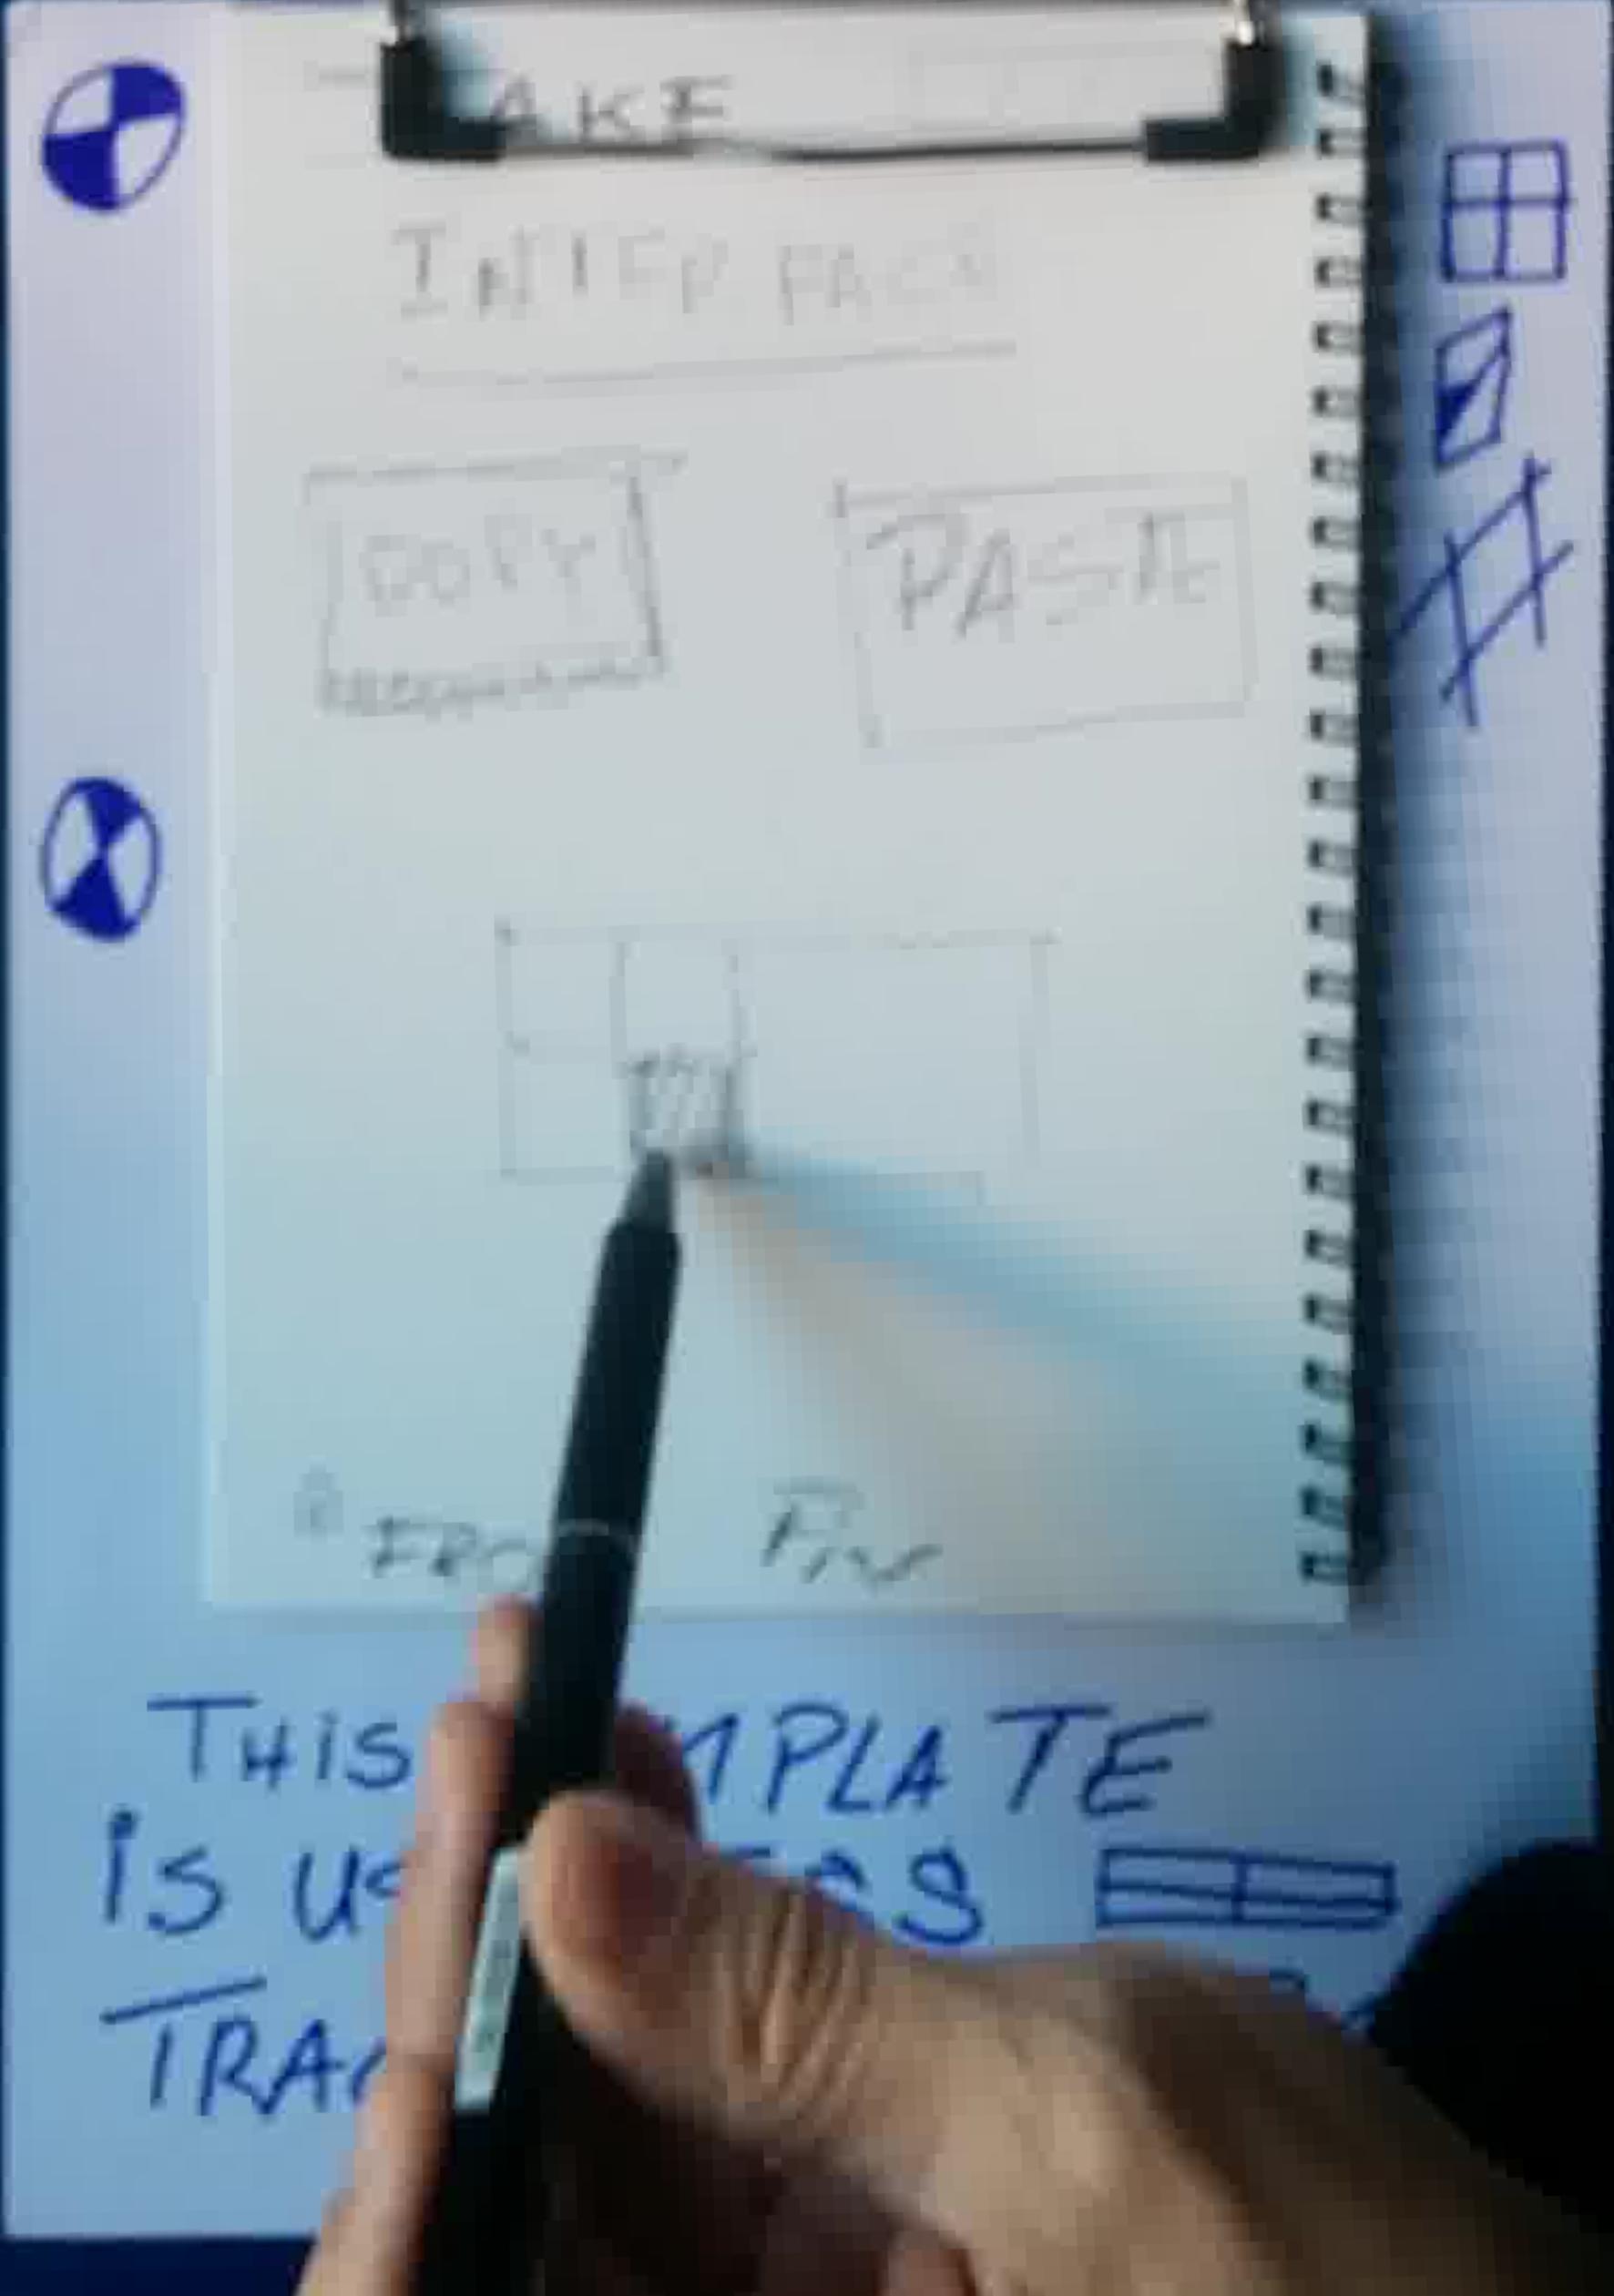 AKE
INTER FACE
COPY PASTE
FRO Pin
THIS MPLATE
is US
TRA